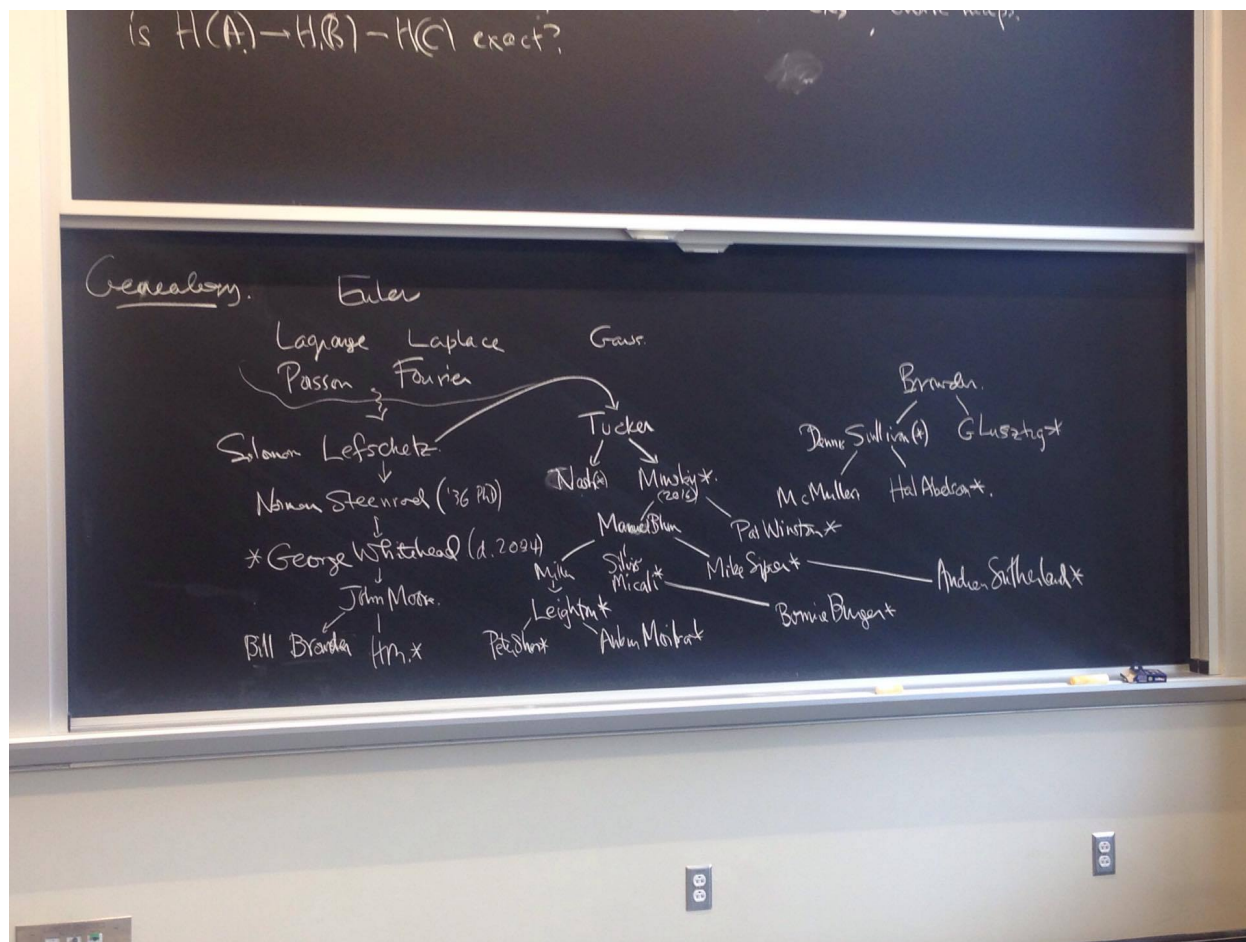 is H(A) → H(B) – H(C) exact?
Genealogy.
Euler
Lagrange Laplace Gauss
Poisson Fourier
Solomon Lefschetz
Norman Steenrod ('36 PhD)
*George Whitehead (d. 2004)
John Moore
Bill Browder HM.*
Tucker
Nash(*) Minsky*.
(2016)
Manuel Blum Pat Winston*
Miller Silvio Micali* Mike Sipser* Andrew Sutherland*
Leighton* Bonnie Berger*
Peter Shor* Ankur Moitra*
Browder.
Dennis Sullivan(*) G Lusztig*
McMullen Hal Abelson*.